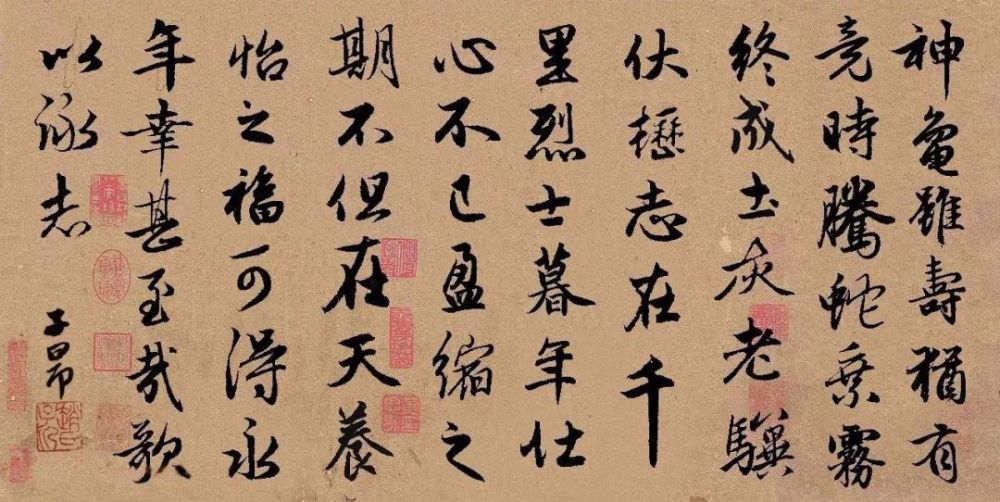 神龜雖壽猶有
竟時騰蛇乘霧
終成土灰老驥
伏櫪志在千
里烈士暮年仕
心不已盈縮之
期不但在天養
怡之福可得永
年幸甚至哉歌
以詠志
子昂
趙氏子昂